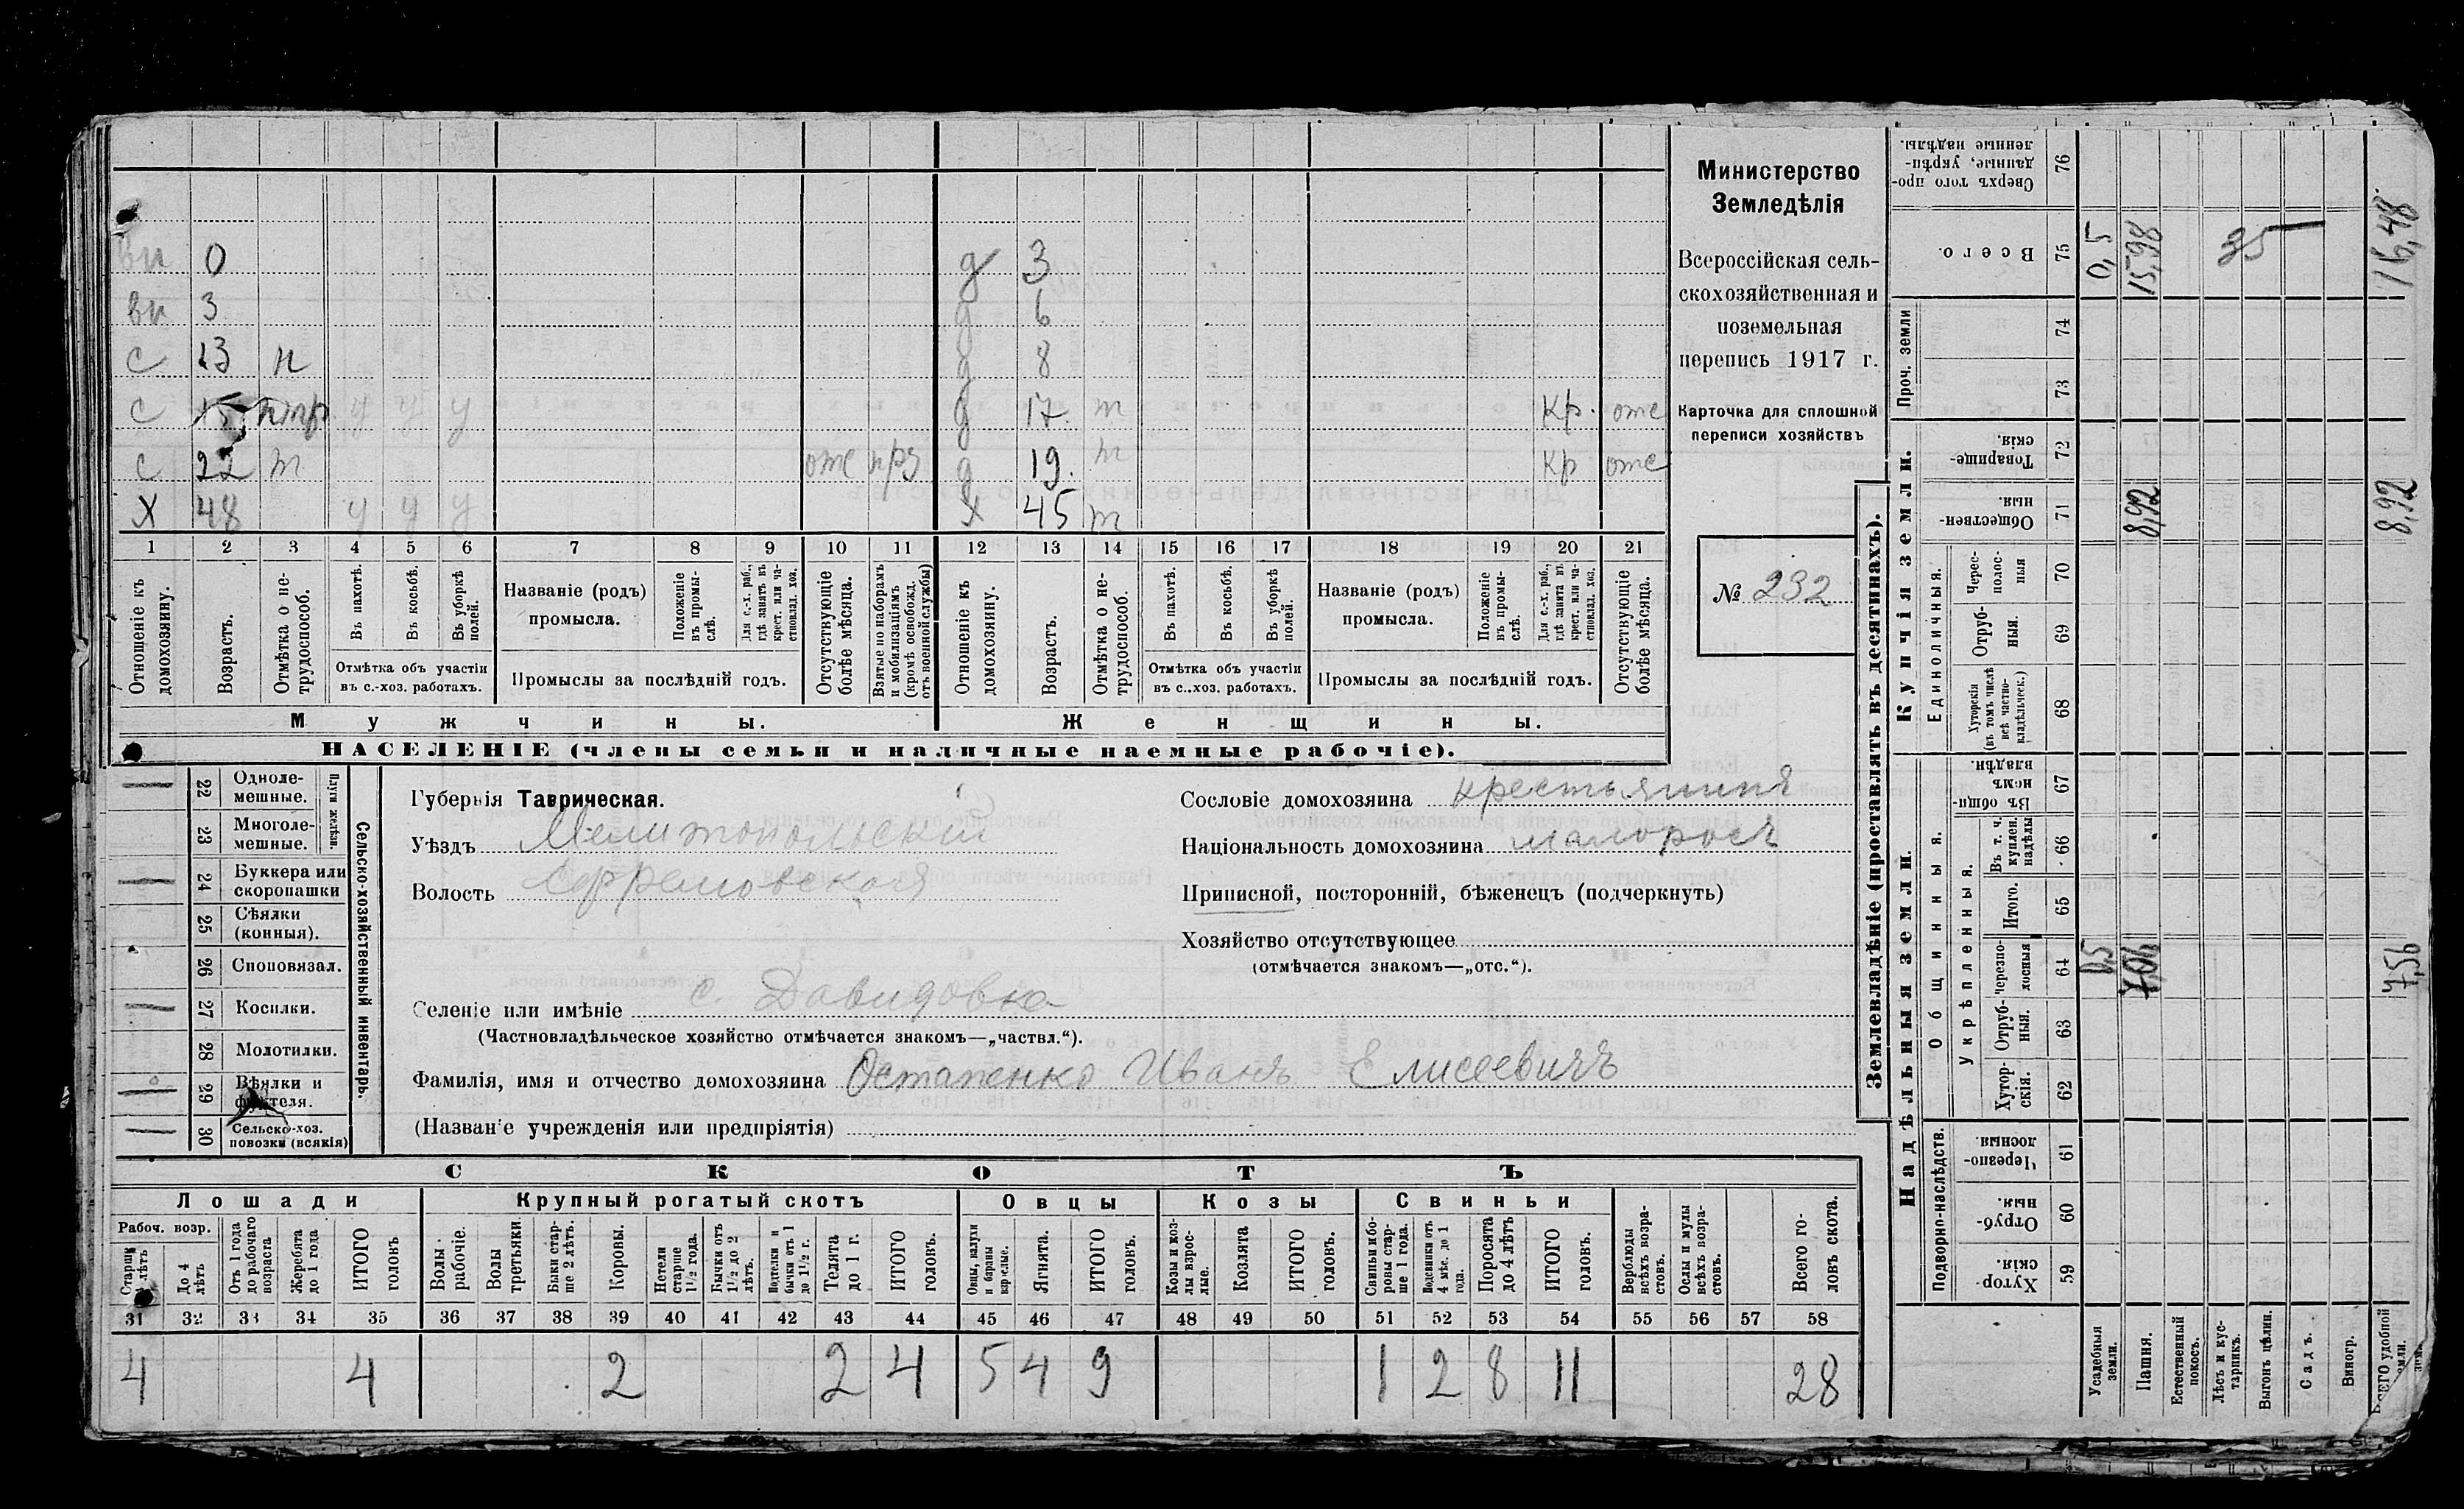 вн 0 д 3
вн 3 д 6
с 13 н д 8
с 15 нтр. у у у д 17. т кр. отс
с 22 т отс прз д 19. т кр отс
Х 48 у у у х 45 т
1 2 3 4 5 6 7 8 9 10 11 12 13 14 15 16 17 18 19 20 21
Отношеніе къ домохозяину.
Возрастъ.
Отмѣтка о нетрудоспособ.
Въ пахотѣ.
Въ косьбѣ.
Въ уборкѣ полей.
Отмѣтка объ участіи въ с.-хоз. работахъ.
Названіе (родъ) промысла.
Положеніе въ промыслѣ.
Для с.-х. раб., гдѣ занятъ въ крест. или частновлад. хоз.
Промыслы за послѣдній годъ.
Отсутствующіе болѣе мѣсяца.
Взятые по наборамъ и мобилизаціямъ (кромѣ освобожд. отъ военной службы)
Отношеніе къ домохозяину.
Возрастъ.
Отмѣтка о нетрудоспособ.
Въ пахотѣ.
Въ косьбѣ.
Въ уборкѣ полей.
Отмѣтка объ участіи въ с..хоз. работахъ.
Названіе (родъ) промысла.
Положеніе въ промыслѣ.
Для с.-х. раб., гдѣ занята въ крест. или частновлад. хоз.
Промыслы за послѣдній годъ.
Отсутствующіе болѣе мѣсяца.
Мужчины. Женщины.
НАСЕЛЕНІЕ (члены семьи и наличные наемные рабочіе).
Министерство
Земледѣлія
Всероссійская сель-
скохозяйственная и
поземельная
перепись 1917 г.
Карточка для сплошной
переписи хозяйствъ
№ 232
22 Однолемешные.
23 Многолемешные.
Плуги желѣзн.
24 Буккера или скоропашки
25 Сѣялки (конныя).
26 Споповязал.
27 Косилки.
28 Молотилки.
29 Вѣялки и фуктеля.
30 Сельско-хоз. повозки (всякія)
Сельско-хозяйственный инвентарь.
Губернія Таврическая.
Уѣздъ Мелитопольскій
Волость Ефремовская
Сословіе домохозяина крестьянинъ
Національность домохозяина малороссъ
Приписной, посторонній, бѣженецъ (подчеркнуть)
Хозяйство отсутствующее
(отмѣчается знакомъ—„отс.“).
Селеніе или имѣніе с. Давидовка
(Частновладѣльческое хозяйство отмѣчается знакомъ—„частвл.“).
Фамилія, имя и отчество домохозяина Остапенко Иванъ Елисеевичъ
(Названіе учрежденія или предпріятія)
СКОТЪ
Лошади Крупный рогатый скотъ Овцы Козы Свиньи
Рабоч. возр.
Старше 4 лѣтъ
До 4 лѣтъ
Отъ 1 года до рабочаго возраста
Жеребята до 1 года
ИТОГО головъ
Волы рабочіе.
Волы третьяки.
Быки старше 2 лѣтъ.
Коровы.
Нетели старше 1½ года.
Бычки отъ 1½ до 2 лѣтъ.
Подтелки и бычки отъ 1 до 1½ г.
Телята до 1 г.
ИТОГО головъ.
Овцы, валухи и бараны взрослые.
Ягнята.
ИТОГО головъ.
Козы и козлы взрослые.
Козлята
ИТОГО головъ.
Свиньи и боровы старше 1 года.
Подсвинки отъ 4 мѣс. до 1 года.
Поросята до 4 лѣтъ
ИТОГО головъ.
Верблюды всѣхъ возрастовъ.
Ослы и мулы всѣхъ возрастовъ.
Всего головъ скота.
31 32 33 34 35 36 37 38 39 40 41 42 43 44 45 46 47 48 49 50 51 52 53 54 55 56 57 58
4 4 2 2 4 5 4 9 1 2 8 11 28
Землевладѣніе (проставлять въ десятинахъ).
Сверхъ того проданные, укрѣпленные надѣлы. 76
Всего. 75 0,5 15,98 16,48
Проч. земли 74
73
Купчія земли.
Товарищескія. 72
Общественныя 71 8,92 8,92
Единоличныя.
Чересполосныя 70
Отрубныя. 69
Хуторскія (въ томъ числѣ всѣ частновладѣльческ.) 68
Надѣльныя земли.
Общинныя.
Въ общинномъ владѣн. 67
Укрѣпленныя.
Въ т. ч. куплен. надѣлы 66
Итого. 65
черезполосныя 64 0,5 7,06 7,56
Отрубныя. 63
Хуторскія. 62
Подворно-наслѣдств.
Черезполосныя. 61
Отрубныя. 60
Хуторскія. 59
Усадебныя земли.
Пашня.
Естественный покосъ.
Лѣсъ и кустарникъ.
Выгонъ цѣлин.
Садъ.
Виногр.
ВСЕГО удобной земли.